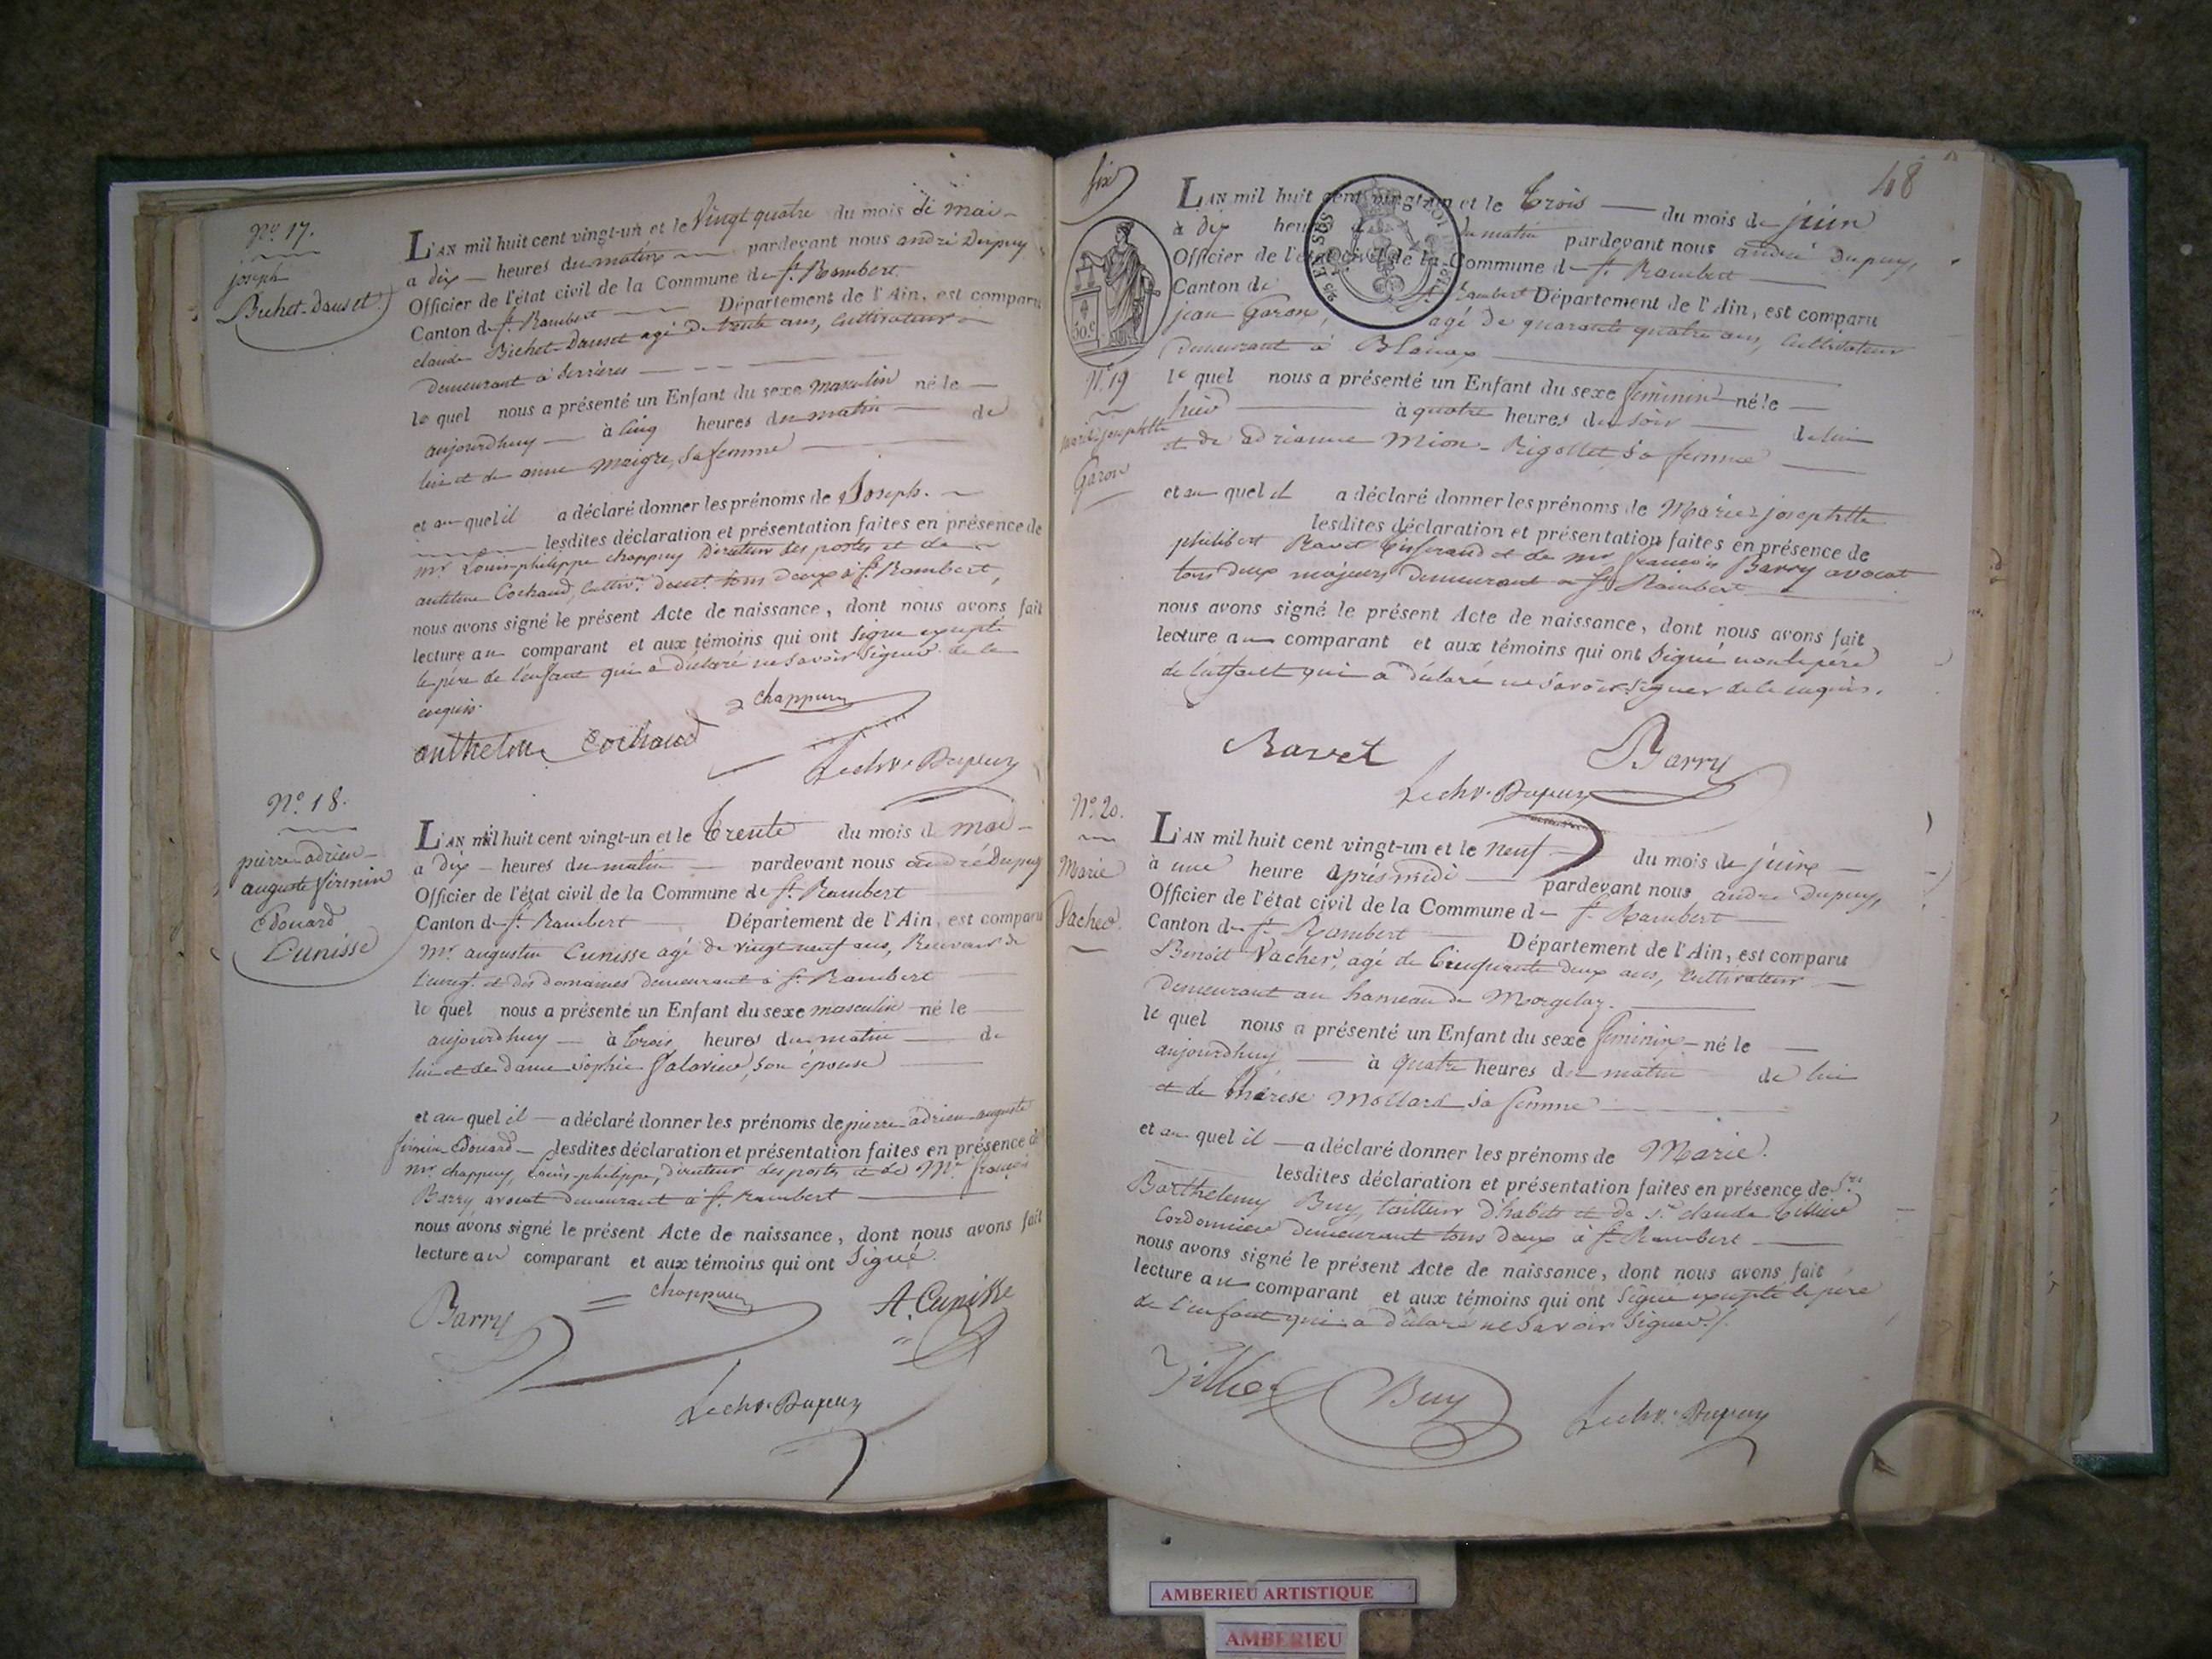 N.° 17.
joseph
Bichet-Dauset
L'AN mil huit cent vingt-un et le Vingt quatre du mois de mai
a dix heures du matin pardevant nous andré Dupuy
Officier de l'état civil de la Commune de St. Rambert
Canton de St. Rambert Département de l'Ain, est comparu
claude Bichet-Dauset agé de trente ans, cultivateur
demeurant à Serrieres
le quel nous a présenté un Enfant du sexe masculin né le
aujourdhuy à cinq heures du matin de
lui et de anne Maigre, sa femme
et au quel il a déclaré donner les prénoms de Joseph.
lesdites déclaration et présentation faites en présence de
mr. Louis-philippe chappuy Directeur des postes et de
antelme Cochaud, cultivr. demt. tous deux à St. Rambert,
nous avons signé le présent Acte de naissance, dont nous avons fait
lecture au comparant et aux témoins qui ont signé excepté
le père de l'enfant qui a déclaré ne savoir signer de ce
enquis.
chappuy
anthelme Cochaud
Le chr. Dupuy
N.° 18.
pierre adrien
auguste firmin
Edouard
Cunisse
L'AN mil huit cent vingt-un et le Trente du mois de mai
à dix heures du matin pardevant nous andré Dupuy
Officier de l'état civil de la Commune de St. Rambert
Canton de St. Rambert Département de l'Ain, est comparu
mr. augustin Cunisse agé de vingt neuf ans, Receveur de
l'enregt. et des domaines demeurant à St. Rambert
le quel nous a présenté un Enfant du sexe masculin né le
aujourdhuy à trois heures du matin de
lui et de dame Sophie son épouse
et au quel il a déclaré donner les prénoms de pierre adrien auguste
firmin Edouard lesdites déclaration et présentation faites en présence de
mr. chappuy, Louis-philippe, directeur des postes et de Mr. françois
Barry avocat demeurant à St. Rambert
nous avons signé le présent Acte de naissance, dont nous avons fait
lecture au comparant et aux témoins qui ont Signé.
Barry chappuy A. Cunisse
Le chr. Dupuy
48
50.c
25 EN SUS
L'AN mil huit cent vingt-un et le Trois du mois de juin
à dix heures du matin pardevant nous andré Dupuy,
Officier de l'état civil de la Commune de St. Rambert
Canton de St. Rambert Département de l'Ain, est comparu
jean Garon, agé de quarante quatre ans, Cultivateur
demeurant à Blanaz
N.° 19
marie josephtte
Garon
le quel nous a présenté un Enfant du sexe féminin né le
hier à quatre heures du soir de lui
et de adrianne Mion-Rigollet, sa femme
et au quel il a déclaré donner les prénoms de Marie josephtte
lesdites déclaration et présentation faites en présence de
philibert Ravet Tisserand et de mr françois Barry avocat
tous deux majeurs demeurant à St. Rambert
nous avons signé le présent Acte de naissance, dont nous avons fait
lecture au comparant et aux témoins qui ont signé non le père
de l'enfant qui a déclaré ne savoir signer de ce enquis.
Ravet Barry
Le chr. Dupuy
N.° 20.
Marie
Vacher
L'AN mil huit cent vingt-un et le neuf du mois de juin
à une heure après midi pardevant nous andré Dupuy,
Officier de l'état civil de la Commune de St. Rambert
Canton de St. Rambert Département de l'Ain, est comparu
Benoit Vacher, agé de Cinquante deux ans, Cultivateur
demeurant au hameau de Morgelaz.
le quel nous a présenté un Enfant du sexe féminin né le
aujourdhuy à quatre heures du matin de lui
et de thérèse Mollard sa femme
et au quel il a déclaré donner les prénoms de Marie.
lesdites déclaration et présentation faites en présence de Srs
Barthelemy Buy, tailleur d'habits et de Sr. claude
Cordonnier demeurant tous deux à St. Rambert
nous avons signé le présent Acte de naissance, dont nous avons fait
lecture au comparant et aux témoins qui ont signé excepté le père
de l'enfant qui a déclaré ne savoir signer.
Buy Le chr. Dupuy
AMBERIEU ARTISTIQUE
AMBERIEU